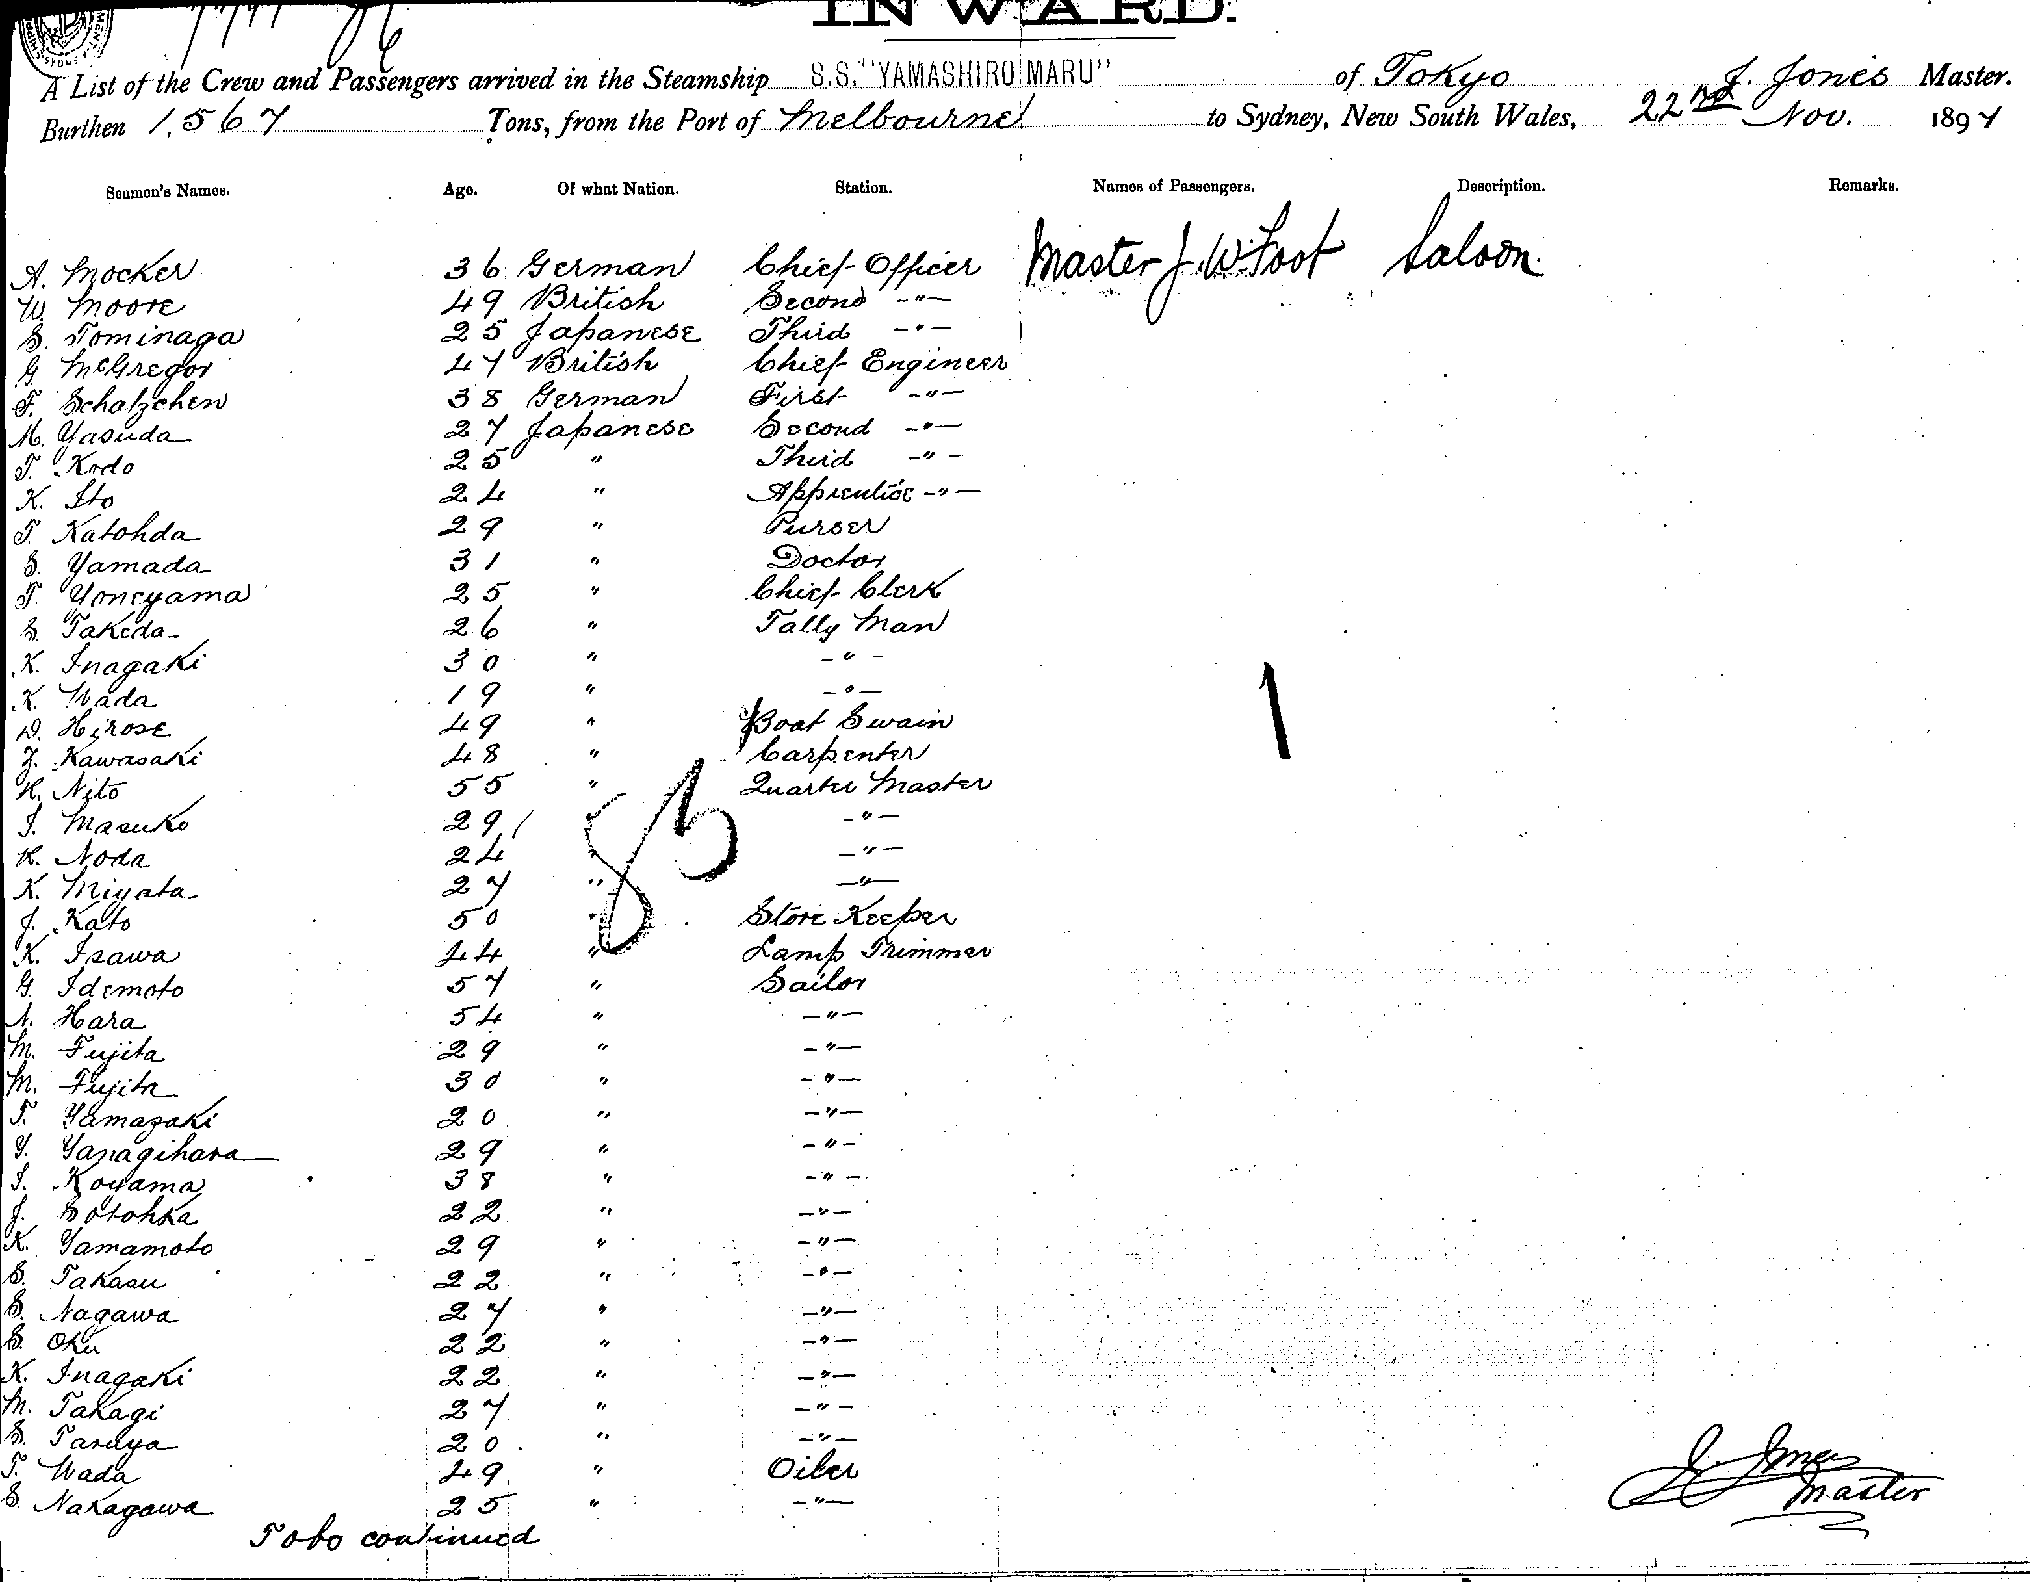 INWARD.
A List of the Crew and Passengers arrived in the Steamship S.S. "YAMASHIRO MARU" of Tokyo J. Jones Master.
Burthen 1,567 Tons, from the Port of Melbourne to Sydney, New South Wales, 22nd Nov. 1897
Seamen's Names. Age. Of what Nation. Station. Names of Passengers. Description. Remarks.
A. Mocker 36 German Chief Officer Master J. W. Foot Saloon
W. Moore 49 British Second -"-
S. Tominaga 25 Japanese Third -"-
G. McGregor 47 British Chief Engineer
F. Schatzchen 38 German First -"-
M. Yasuda 27 Japanese Second -"-
T. Kodo 25 " Third -"-
K. Ito 24 " Apprentice -"-
T. Katohda 29 " Purser
S. Yamada 31 " Doctor
T. Yoneyama 25 " Chief Clerk
S. Takeda 26 " Tally Man
K. Inagaki 30 " -"-
K. Wada 19 " -"-
D. Hirose 49 " Boat Swain
Z. Kawasaki 48 " Carpenter
K. Nito 55 " Quarter Master
I. Masuko 29 " -"-
K. Noda 24 " -"-
K. Miyata 27 " -"-
J. Kato 50 " Store Keeper
K. Isawa 44 " Lamp Trimmer
G. Idemoto 57 " Sailor
N. Hara 54 " -"-
M. Fujita 29 " -"-
M. Fujita 30 " -"-
T. Yamazaki 20 " -"-
Y. Yanagihara 29 " -"-
I. Koyama 38 " -"-
J. Sotohka 22 " -"-
K. Yamamoto 29 " -"-
S. Takasu 22 " -"-
S. Nagawa 27 " -"-
S. Oku 22 " -"-
K. Inagaki 22 " -"-
M. Takagi 27 " -"-
S. Taruya 20 " -"-
T. Wada 49 " Oiler
S. Nakagawa 25 " -"-
To be continued
1
83
J. Jones
Master